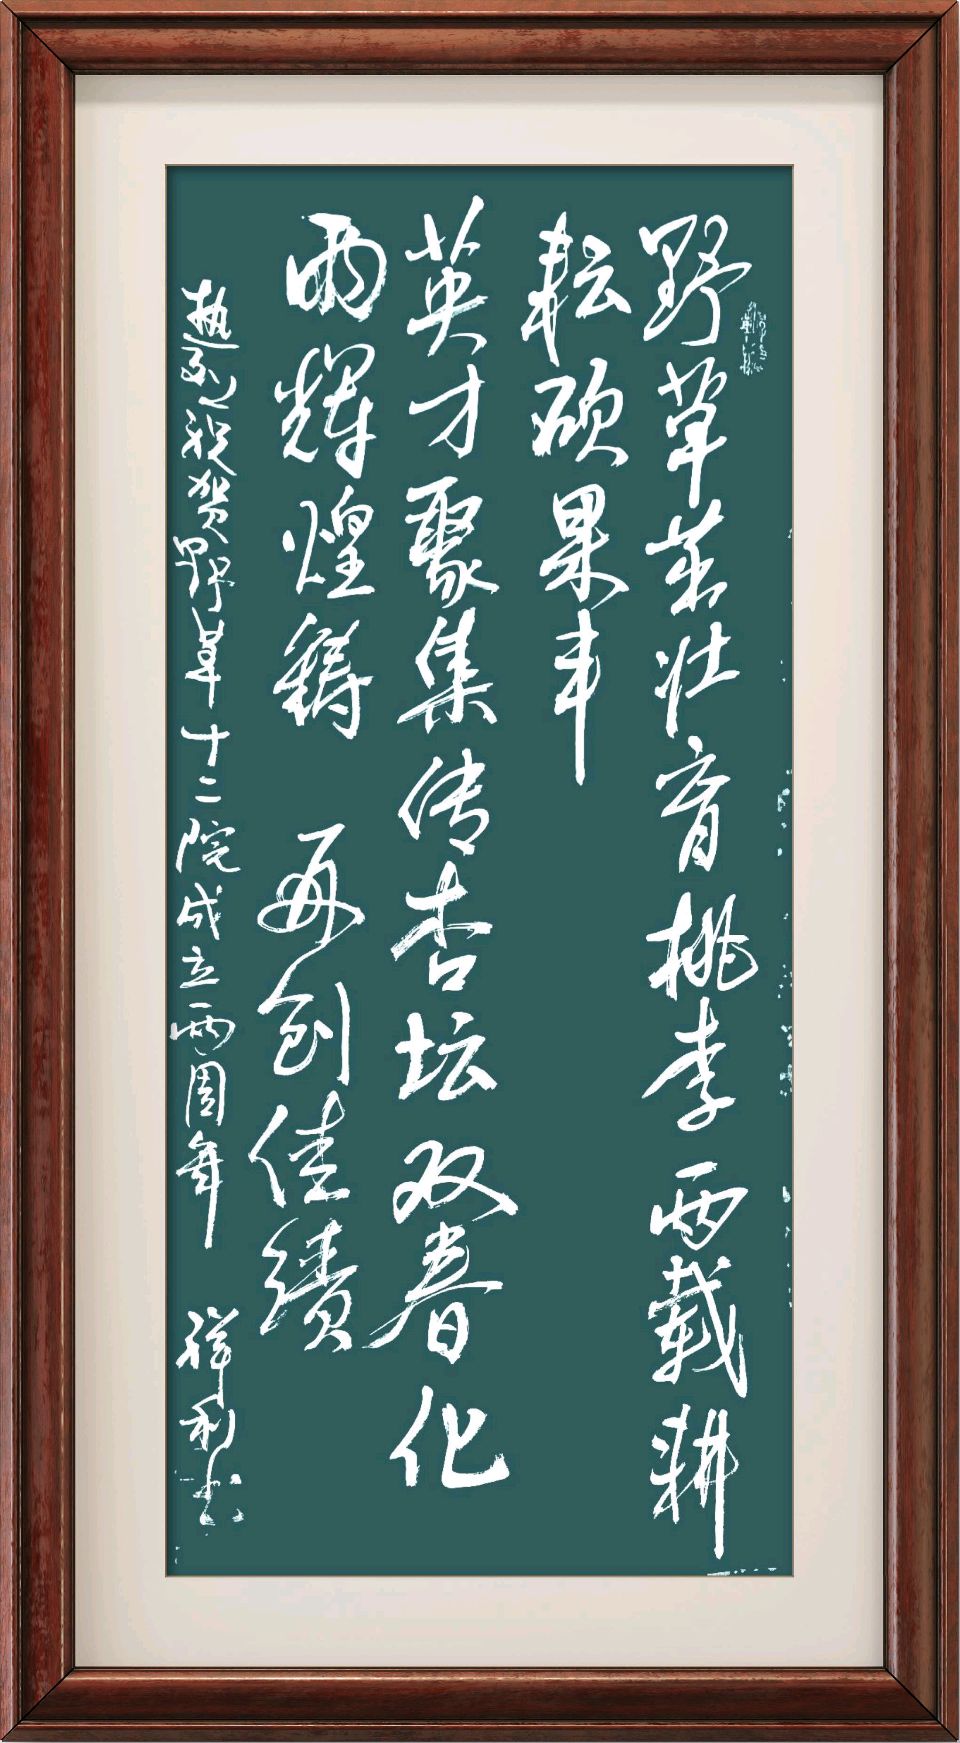 野草茁壮育桃李两载耕
耘硕果丰
英才聚集传杏坛双春化
雨辉煌铸再创佳绩
热烈祝贺野草十二院成立两周年 祥利书